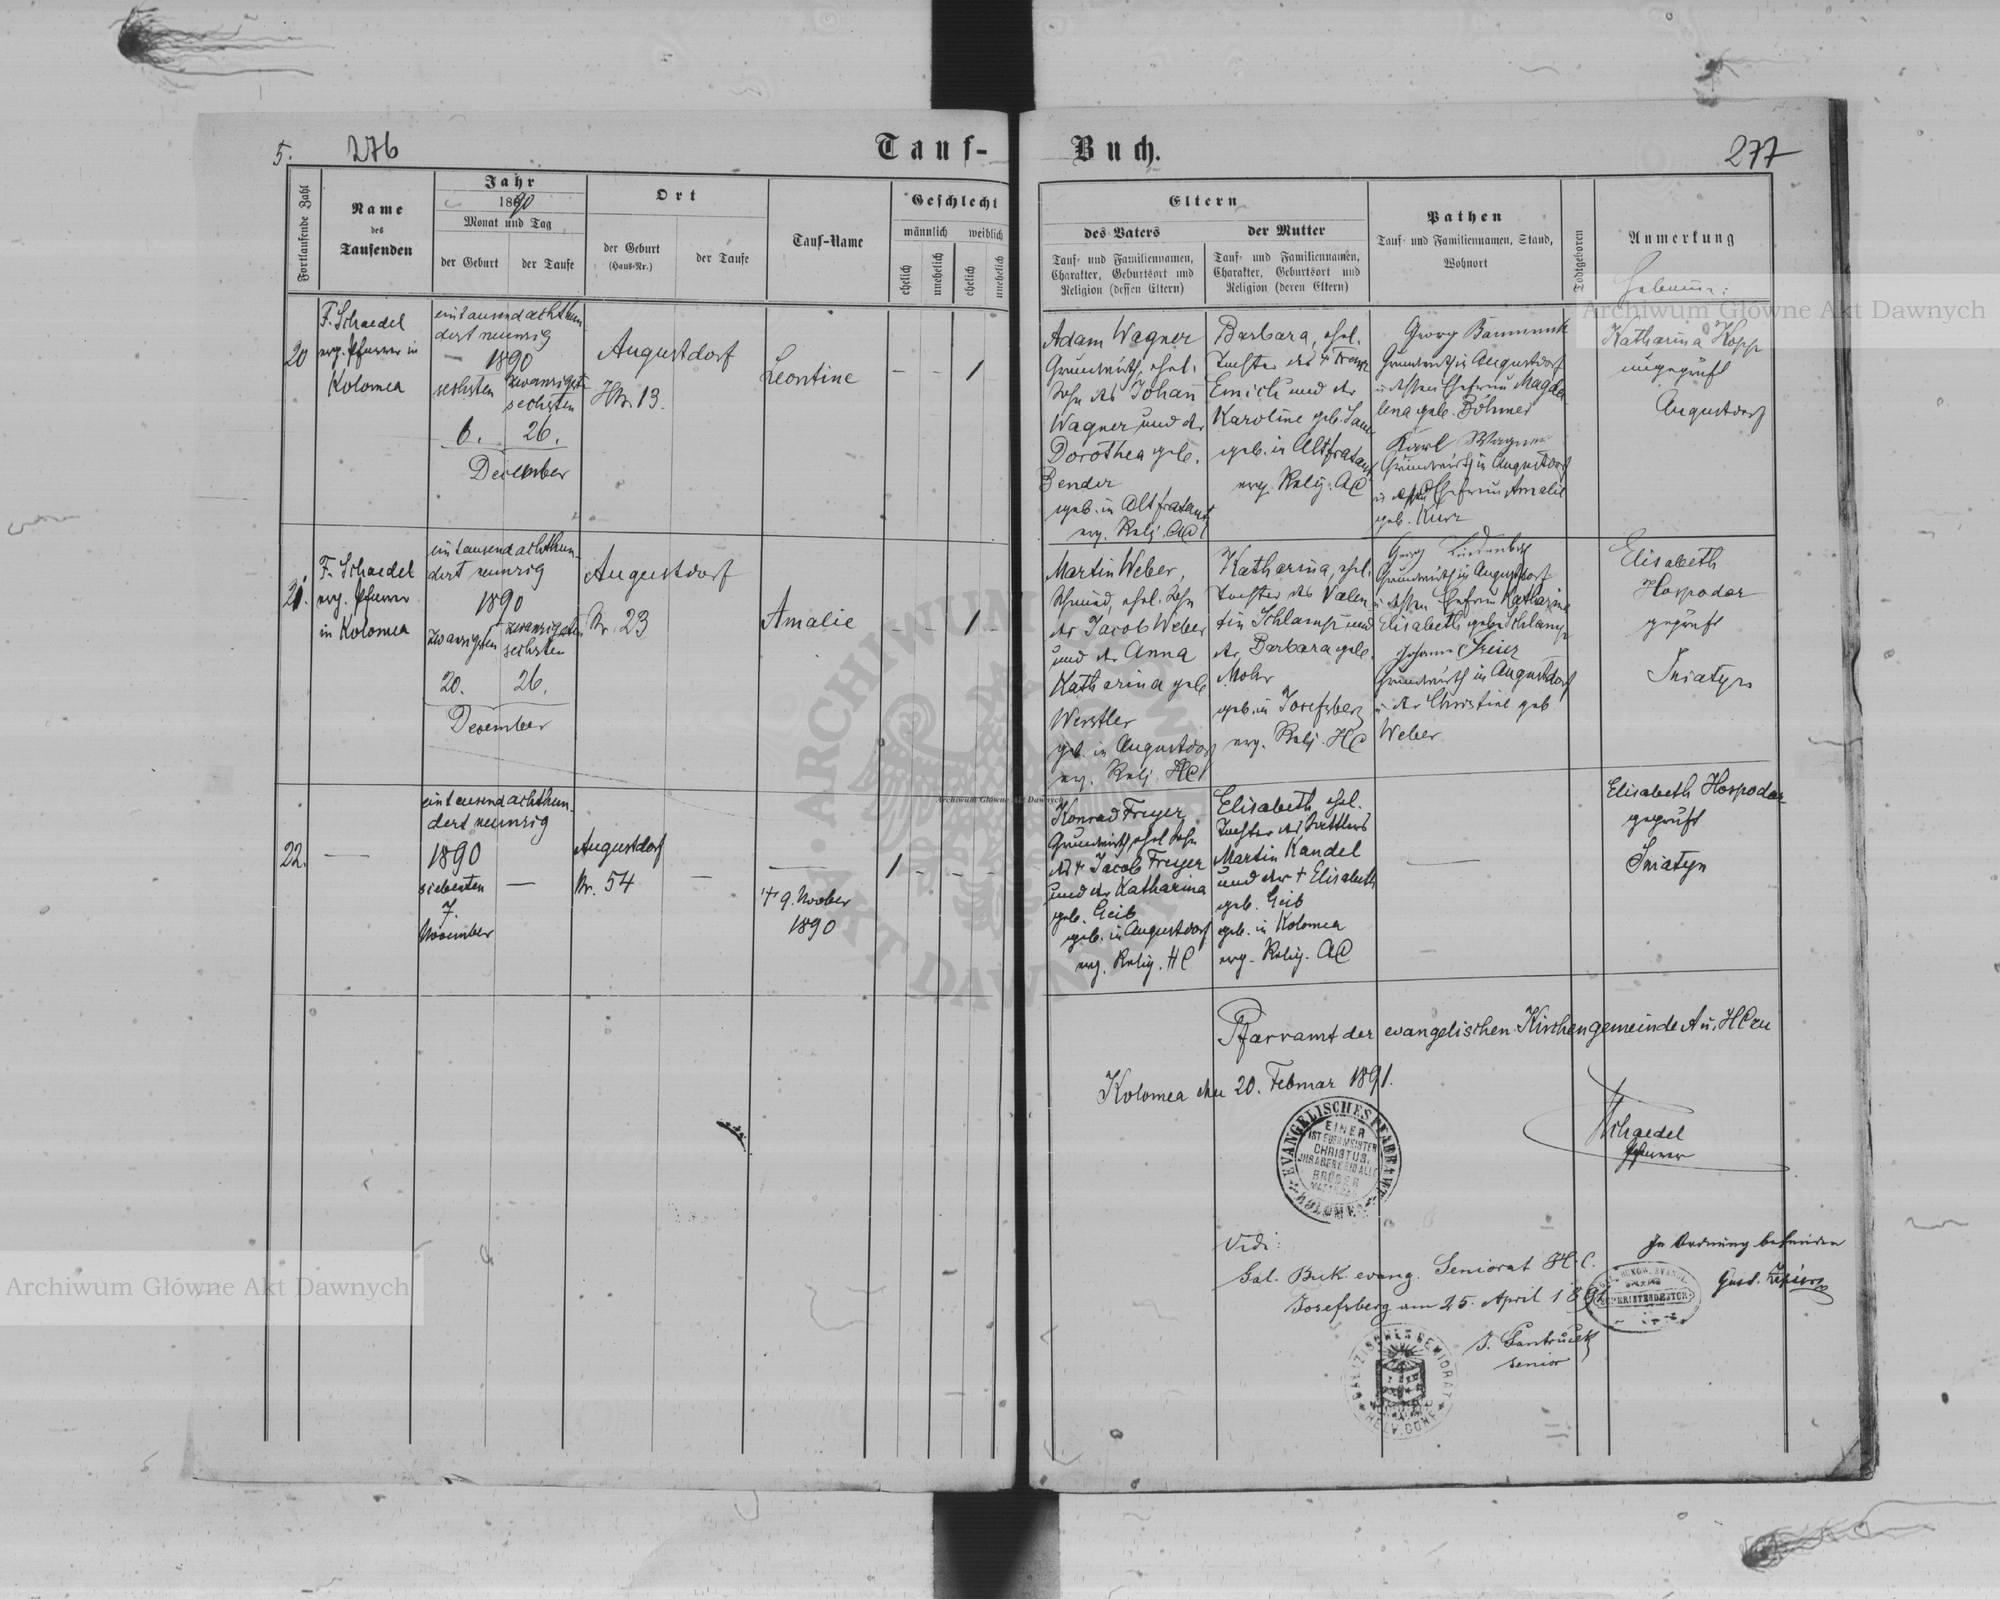 5.
276
Tauf-
Buch.
277
Fortlaufende Zahl
Name
des
Taufenden
Jahr
1890
Monat und Tag
der Geburt
der Taufe
Ort
der Geburt
(Haus-Nr.)
der Taufe
Tauf-Name
Geschlecht
männlich
weiblich
ehelich
unehelich
ehelich
unehelich
Eltern
des Vaters
Tauf- und Familiennamen,
Charakter, Geburtsort und
Religion (dessen Eltern)
der Mutter
Tauf- und Familiennamen,
Charakter, Geburtsort und
Religion (deren Eltern)
Pathen
Tauf- und Familiennamen, Stand,
Wohnort
Todtgeboren
Anmerkung
20
F. Schaedel
evg. Pfarrer in
Kolomea
eintausendachthun
dert neunzig
1890
sechsten
zwanzigst
sechsten
6.
26.
December
Augustdorf
Hs. 13.
Leontine
— — 1
Adam Wagner
Grundwirth, ehel.
Sohn des Johann
Wagner und der
Dorothea geb.
Bender
geb. in Altfratautz
evg. Relig. AC
Barbara, ehel.
Tochter des + Franz
Emich und der
Karoline geb.
geb. in Altfratautz
evg. Relig. AC
Georg
Grundwirth in Augustdorf
u. dessen Ehefrau Magda
lena geb. Böhmer
Karl Wagner
Grundwirth in Augustdorf
u. dessen Ehefrau Amalie
geb. Kurz
Hebamme:
Katharina Kopp
ungeprüft
Augustdorf
21.
F. Schaedel
evg. Pfarrer
in Kolomea
eintausendachthun-
dert neunzig
1890
zwanzigsten
zwanzigsten
sechsten
20.
26.
December
Augustdorf
Nr. 23
Amalie
— — 1 —
Martin Weber,
Schmied, ehel. Sohn
des Jacob Weber
und der Anna
Katharina geb
Werstler
geb. in Augustdorf
evg. Relig. HC
Katharina, ehel.
Tochter des Valen
tin Schlamp und
der Barbara geb.
Mohr
geb. in Josefsberg
evg. Relig. HC
Georg
Grundwirth in Augustdorf
u. dessen Ehefrau Katharina
Elisabeth geb. Schlamp
Johann
Grundwirth in Augustdorf
u. der Christine geb.
Weber
Elisabeth
Hospodar
geprüft
Sniatyn
22.
—
eintausendachthun-
dert neunzig
1890
siebenten
7.
November
—
Augustdorf
Nr. 54
—
—
+ 9. November
1890
1 — — —
Konrad Freyer
Grundwirth, ehel. Sohn
des + Jacob Freyer
und der Katharina
geb. Geib
geb. in Augustdorf
evg. Relig. HC
Elisabeth, ehel.
Tochter des Sattlers
Martin Kandel
und der + Elisabeth
geb. Geib
geb. in Kolomea
evg. Relig. AC
—
Elisabeth Hospodar
geprüft
Sniatyn
Pfarramt der evangelischen Kirchengemeinde A u. HC zu
Kolomea den 20. Februar 1891.
Schaedel
Pfarrer
EVANGELISCHES PFARRAMT
KOLOMEA
EINER
IST EUER MEISTER
CHRISTUS,
IHR ABER SEID ALLE
BRÜDER
Vidi:
Gal. Buk. evang. Seniorat H.C.
Josefsberg am 25. April 1891
senior
GALIZISCHES SENIORAT
HELV. CONF.
In Ordnung befunden
SUPERINTENDENTUR
Archiwum Główne Akt Dawnych
Archiwum Główne Akt Dawnych
Archiwum Główne Akt Dawnych
ARCHIWUM
AKT DAWNYCH